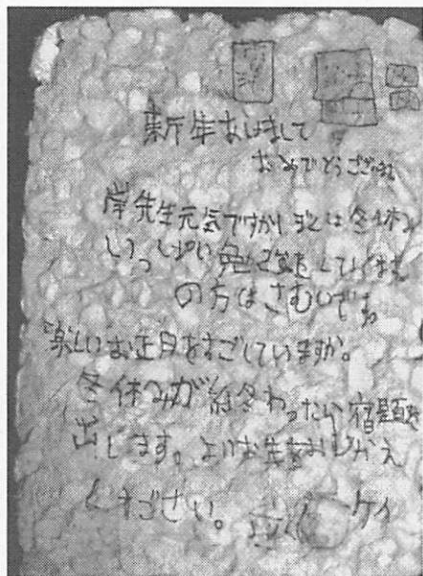 新年あけまして
おめでとうござ
岸先生元気ですか は冬休み
いっぱい勉強してい
の方はさむいです
楽しいお正月をすごしていますか。
冬休みが終わったら宿題を
出します。よいお年をおむかえ
ください。 ケイ